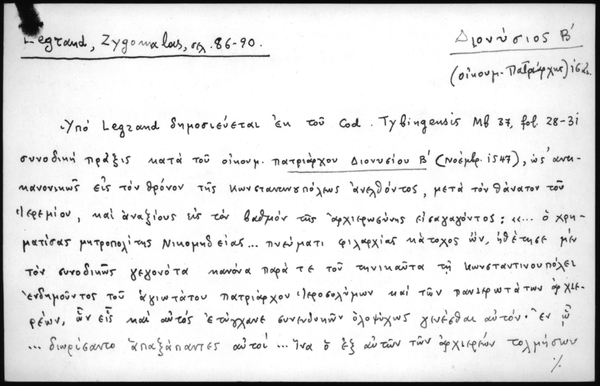 Legrand, Zygomalas, σελ. 86-90.
Διονύσιος Β΄
(οἰκουμ. Πατριάρχης) ις αἰ.
Ὑπό Legrand δημοσιεύεται ἐκ τοῦ Cod. Tybingensis Mb 37, fol. 28-31
συνοδική πρᾶξις κατά τοῦ οἰκουμ. πατριάρχου Διονυσίου Β΄ (Νοέμβρ. 1547), ὡς ἀντι-
κανονικῶς εἰς τόν θρόνον τῆς Κωνσταντινουπόλεως ἀνελθόντος, μετά τόν θάνατον τοῦ
Ἱερεμίου, καί ἀναξίους εἰς τόν βαθμόν τῆς ἀρχιερωσύνης εἰσαγαγόντος: «... ὁ χρη-
ματίσας μητροπολίτης Νικομηδείας... πνεύματι φιλαρχίας κάτοχος ὤν, ἠθέτησε μέν
τόν συνοδικῶς γεγονότα κανόνα παρά τε τοῦ τηνικαῦτα τῇ Κωνσταντινουπόλει
ἐνδημοῦντος τοῦ ἁγιωτάτου πατριάρχου Ἱεροσολύμων καί τῶν πανιερωτάτων ἀρχιε-
ρέων, ὧν εἷς καί αὐτός ἐτύγχανε συνευδοκῶν ὁλοψύχως γενέσθαι αὐτόν· ἐν ᾧ
... διωρίσαντο ἁπαξάπαντες αὐτοί... ἵνα ὁ ἐξ αὐτῶν τῶν ἀρχιερέων τολμήσων
./.